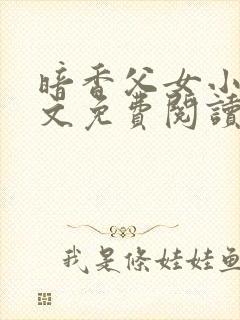 暗香父女小
文免費閱讀
我是條娃娃魚